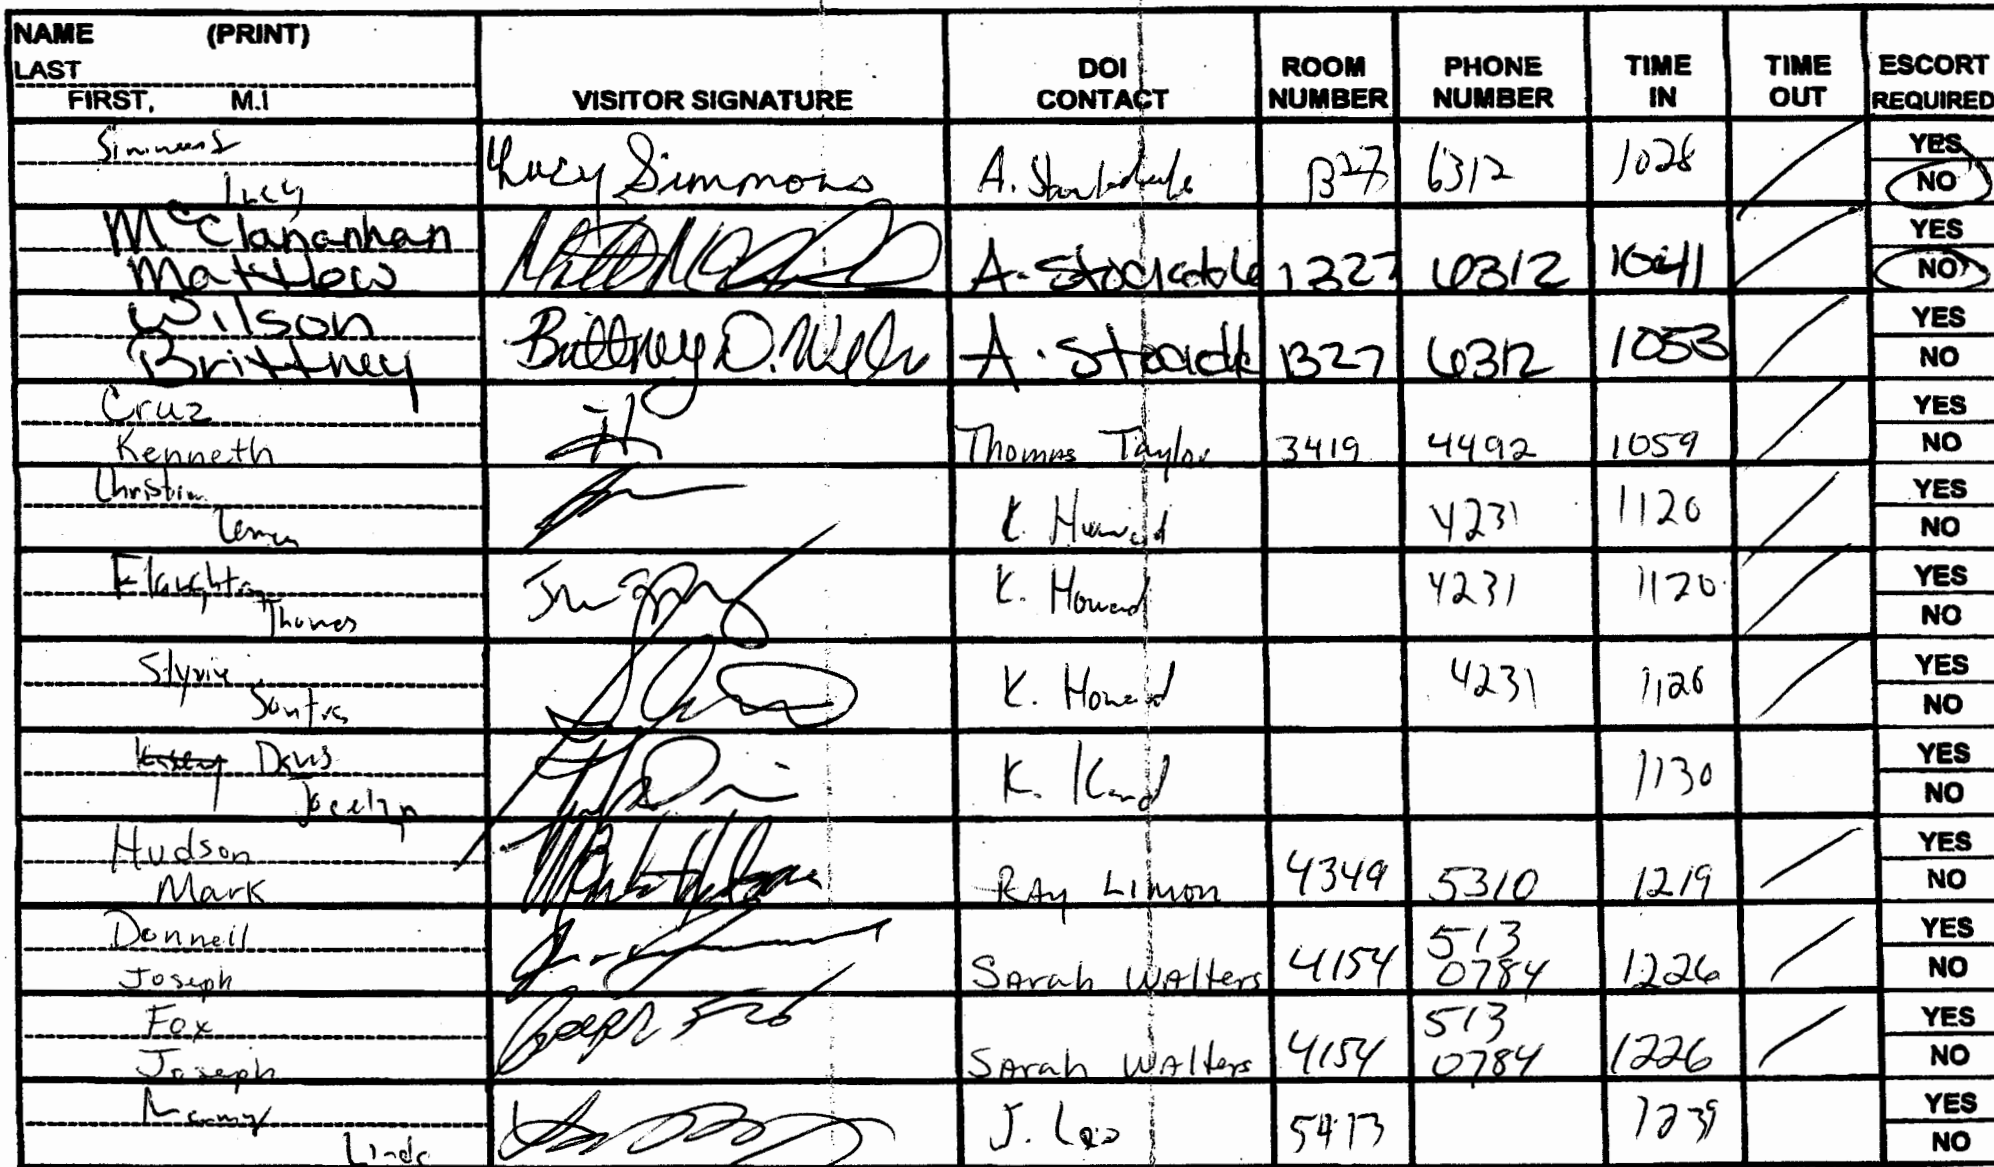 NAME (PRINT)
LAST
FIRST, M.I
VISITOR SIGNATURE
DOI CONTACT
ROOM NUMBER
PHONE NUMBER
TIME IN
TIME OUT
ESCORT REQUIRED
Simmons
Lucy
Lucy Simmons A. B27 6312 1028 YES NO
McClananhan
Matthew
A. Stockdale B27 6312 1041 YES NO
Wilson
Brittney
Brittney D. A. B27 6312 1053 YES NO
Cruz
Kenneth
Thomas Taylor 3419 4492 1059 YES NO
Christian
K. Howard 4231 1120 YES NO
Thomas
K. Howard 4231 1120 YES NO
K. Howard 4231 1126 YES NO
Davis
Jocelyn
K. 1130 YES NO
Hudson
Mark
RAY LIMON 4349 5310 1219 YES NO
Donneil
Joseph
SArah WAlters 4154 513 0784 1226 YES NO
Fox
Joseph
Joseph SArah WAlters 4154 513 0784 1226 YES NO
Linda
J. 5413 1239 YES NO